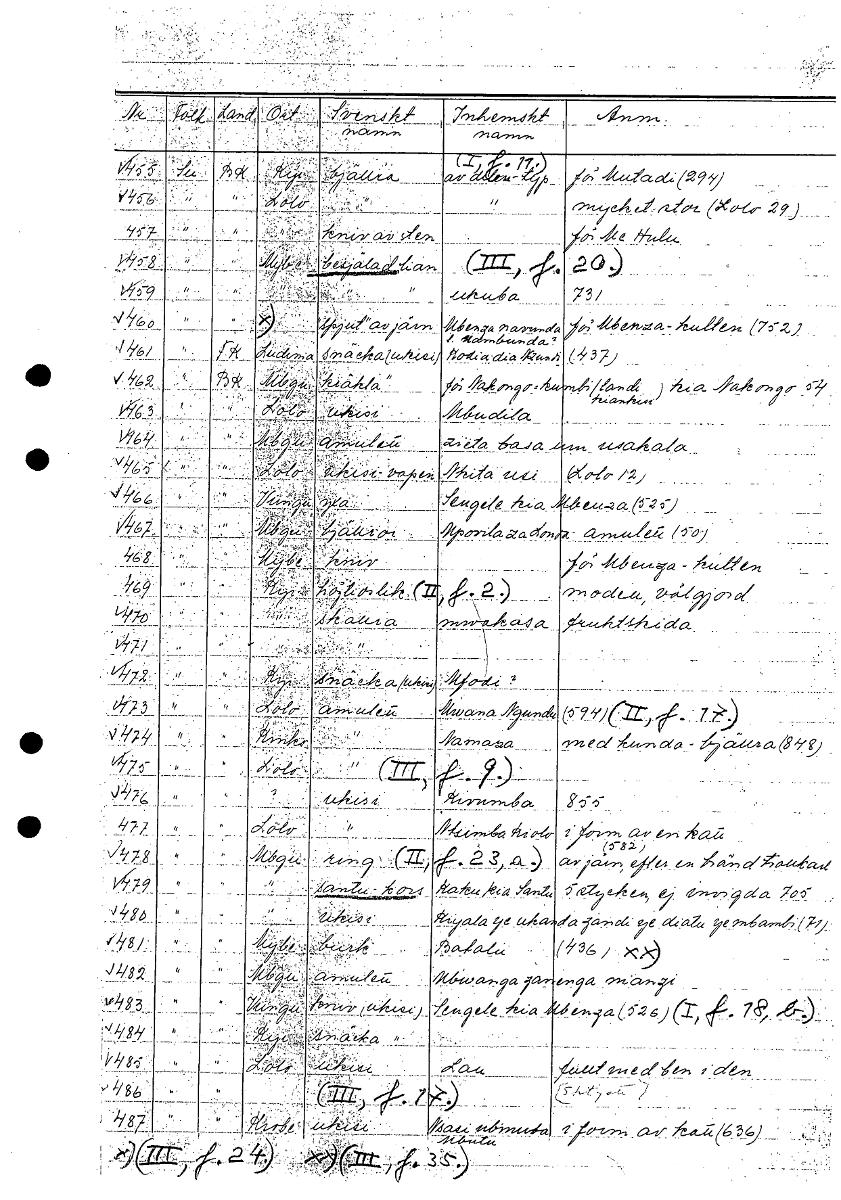 Nr Folk Land Ort Svenskt namn Inhemskt namn Anm.
(I, f. 11.)
√455 Su BK Kyi bjällra av -typ för Mutadi (294)
√456 " " Lolo " " mycket stor (Lolo 29)
457 " " " kniv av sten för Me Hulu
√458 " " Mybe besjälad lian (III, f. 20.)
√459 " " " " " ukuba 731
√460 " " x) "spjut" av järn Mbenza navunda för Mbenza-kulten (752)
l. nambunda?
√461 " FK Ludima snäcka (nkisi) Kodia dia (437)
√462 " BK Mbgu "kräkla" för Nakongo-kumbi kia Nakongo 54
√463 " " Lolo nkisi Mbudila
√464 " " Mbgu amulett zieta basa um nsakala
√465 " " Lolo nkisi-vapen Nkita nsi (Lolo 12)
√466 " " Vungu yxa Sengele kia Mbenza (525)
√467 " " Mbgu bjällror amulett (50)
468 " " Mybe kniv för Mbenza-kulten
469 " " Kyi (II, f. 2.) modern, välgjord
√470 " " " skallra mwakasa fruktskida
√471 " " " "
√472 " " Kyi snäcka (nkisi) Mfodi?
√473 " " Lolo amulett Mwana Ngundu (594) (II, f. 17.)
√474 " " Kinko " Namasa med kunda-bjällra (848)
√475 " " Lolo " (III, f. 9.)
√476 " " ? nkisi Kivumba 855
477 " " Lolo " Ntsimba i form av en katt
(582)
√478 " " Mbgu ring (II, f. 23, a.) av järn, efter en händ
√479 " " " santu-kors Kaku kia Santu 5 stycken, ej invigda 705
√480 " " " nkisi Kiyala ye nkanda zandi ye diatu ye mbambi (71)
√481 " " Mybe burk Bakalu (436) xx)
√482 " " Mbgu amulett Mbwanga zanenga manzi
√483 " " Vungu kniv (nkisi) Sengele kia Mbenza (526) (I, f. 18, b.)
√484 " " Kyi snäcka "
√485 " " Lolo nkisi Lau fullt med ben i den
√486 " " (III, f. 17.)
487 " " nkisi Nsasi i form av katt (636)
x) (III, f. 24.) xx) (III, f. 35.)